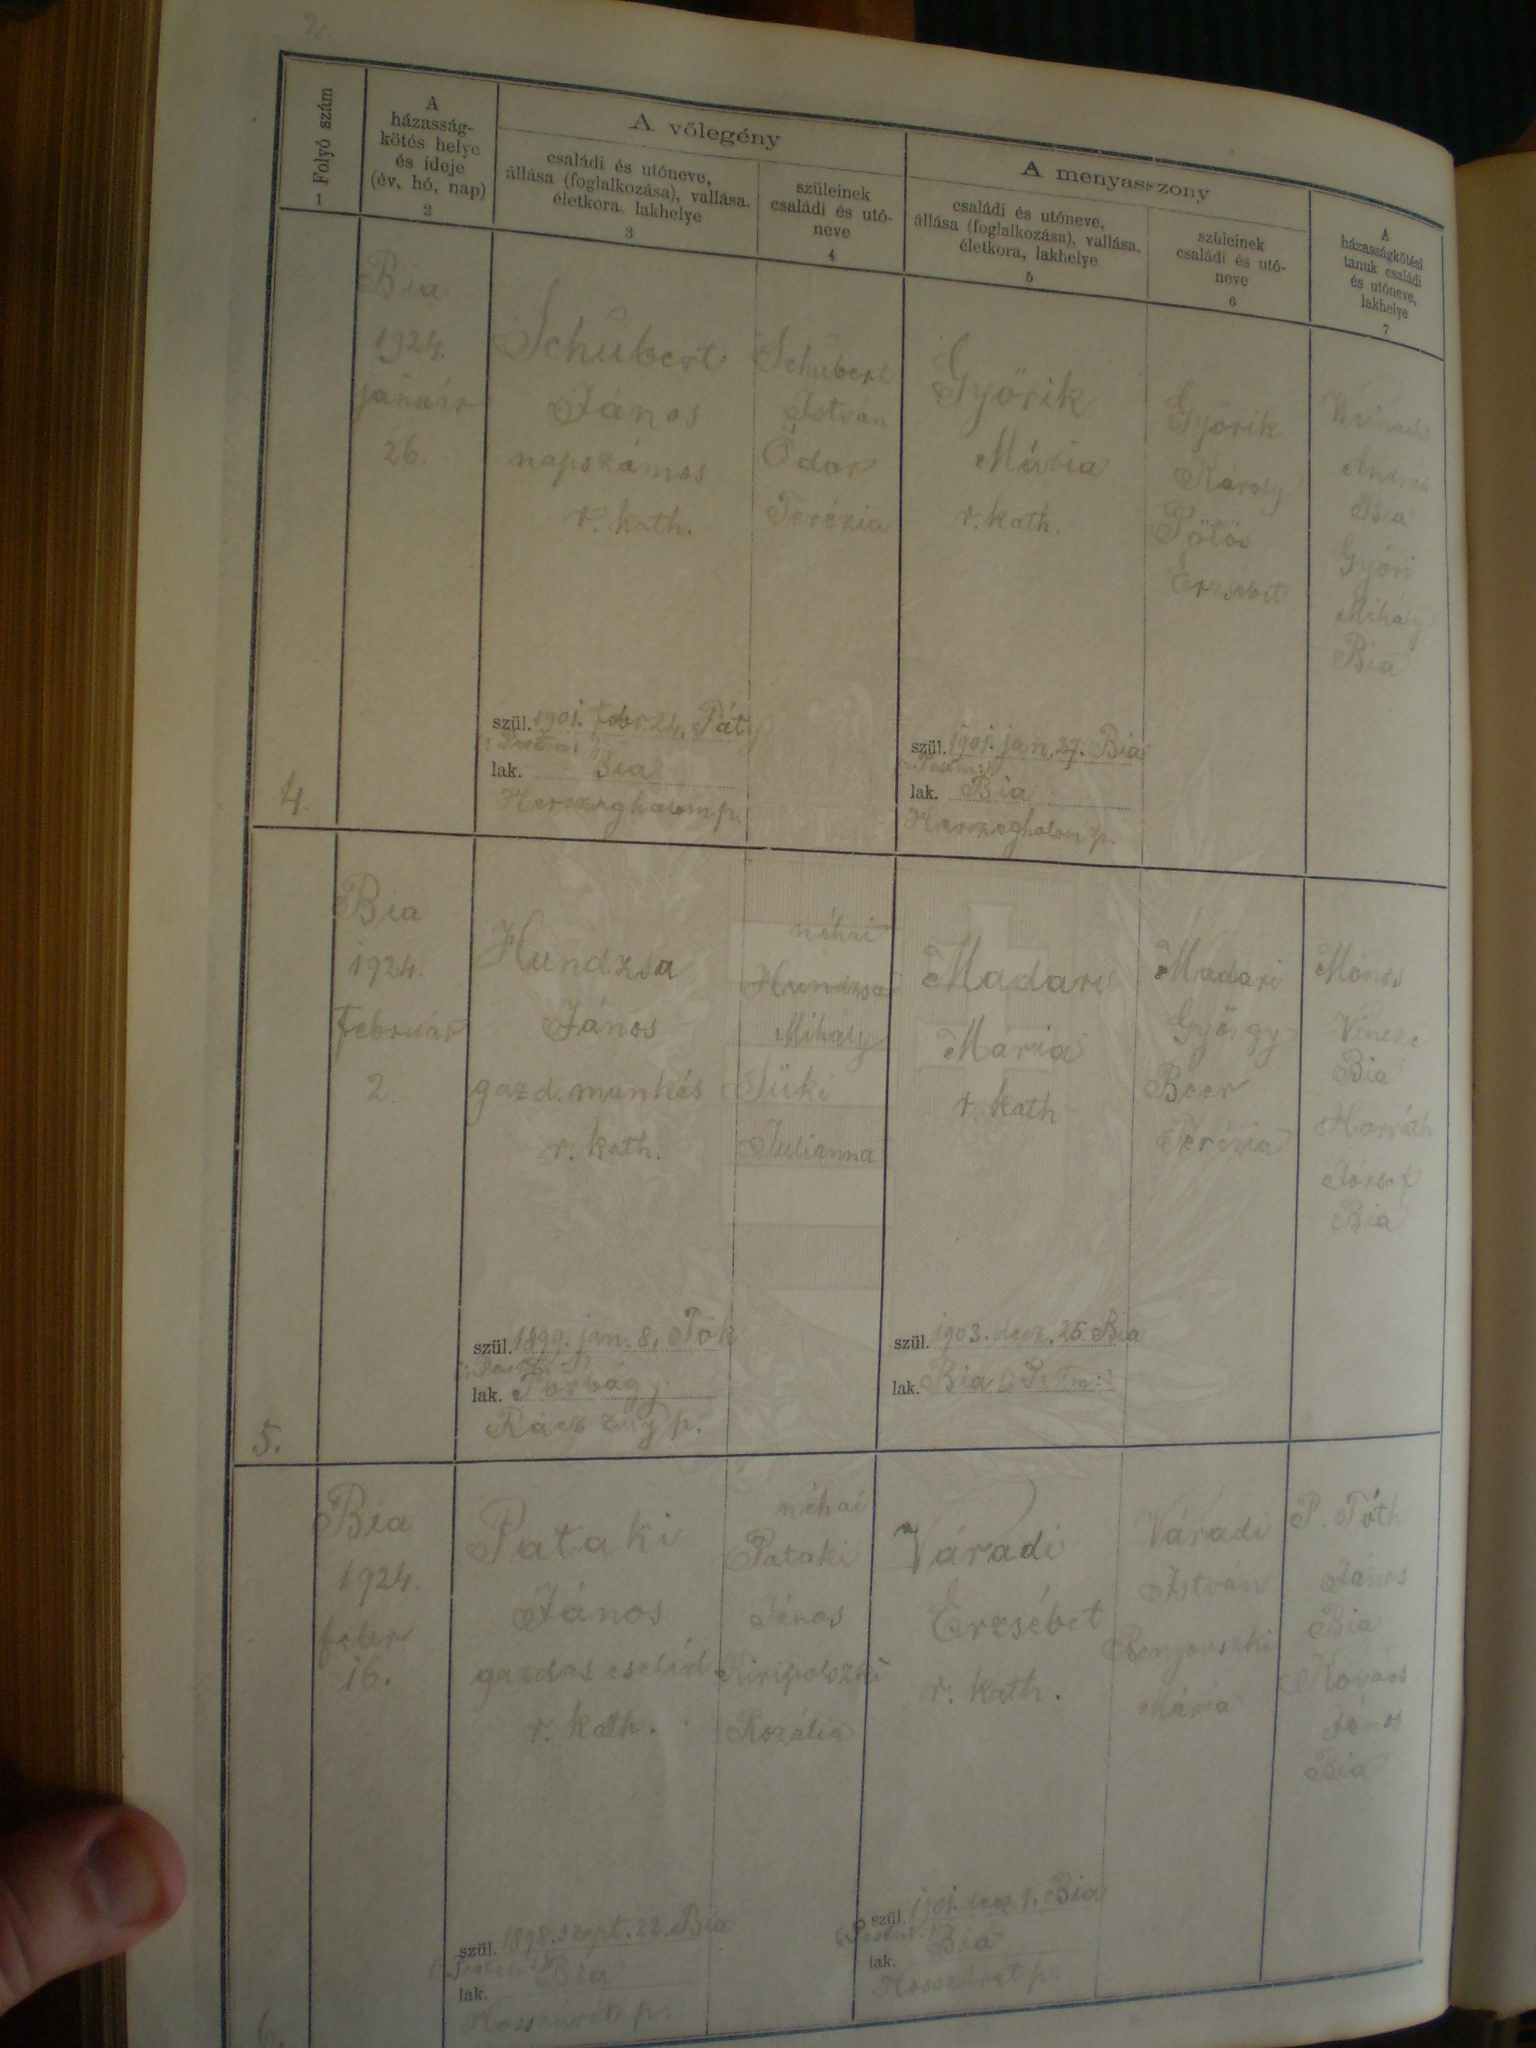 2.
Folyó szám
1
A
házasság-
kötés helye
és ideje
(év, hó, nap)
2
A vőlegény
családi és utóneve,
állása (foglalkozása), vallása,
életkora, lakhelye
3
szüleinek
családi és utó-
neve
4
A menyasszony
családi és utóneve,
állása (foglalkozása), vallása,
életkora, lakhelye
5
szüleinek
családi és utó-
neve
6
A
házasságkötési
tanuk családi
és utóneve,
lakhelye
7
4.
Bia
1924.
január
26.
Schubert
János
napszámos
r. kath.
szül. 1901. febr 24, Páty
lak. Bia
Herczeghalom p.
Schubert
István
Ódor
Terézia
Győrik
Mária
r. kath.
szül. 1901. jan. 27. Bia
lak. Bia
Herczeghalom p.
Győrik
Károly
Pötös
Erzsébet
András
Bia
Győri
Mihály
Bia
5.
Bia
1924.
február
2.
Hundzsa
János
gazd. munkás
r. kath.
szül. 1899. jan. 8, Tök
lak. Torbágy
Rácz zug p.
néhai
Hundzsa
Mihály
Süki
Julianna
Madari
Mária
r. kath
szül. 1903. decz. 25. Bia
lak. Bia
Madari
György
Beer
Terézia
Mónos
Vincze
Bia
Horváth
József
Bia
6.
Bia
1924.
febr
16.
Pataki
János
gazdas. cseléd
r. kath.
szül. 1898. szept. 22. Bia
lak. Bia
Hosszúrét p.
néhai
Pataki
János
Kiripolszki
Rozália
Váradi
Erzsébet
r. kath.
szül. 1901. decz 1. Bia
lak. Bia
Hosszúrét p.
Váradi
István
Benyovszki
Mária
P. Tóth
János
Bia
Kovács
János
Bia